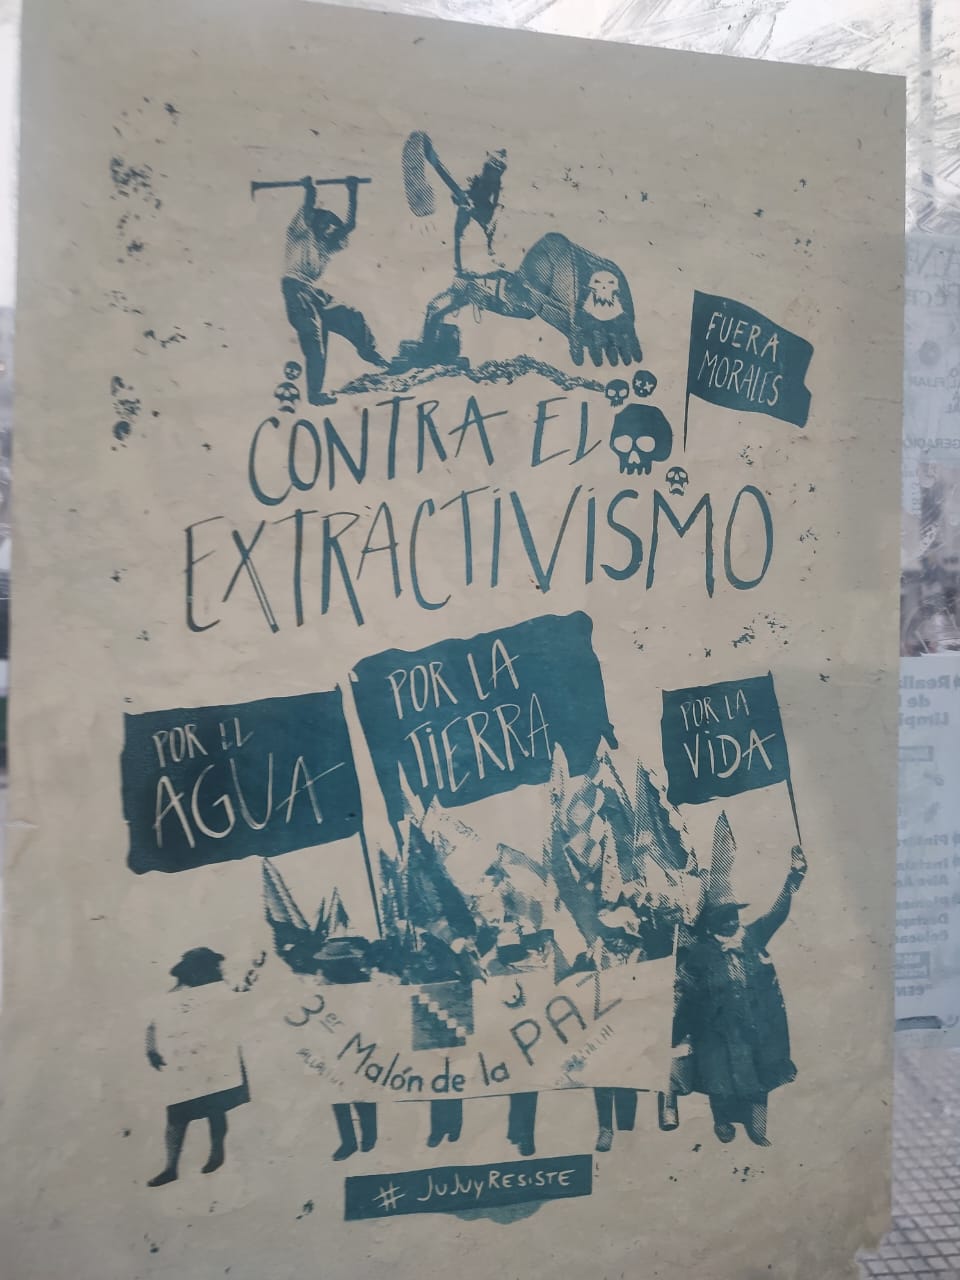 FUERA
MORALES
CONTRA EL
EXTRACTIVISMO
POR EL
AGUA
POR LA
TIERRA
POR LA
VIDA
3er Malón de la PAZ
# JUJUY RESISTE